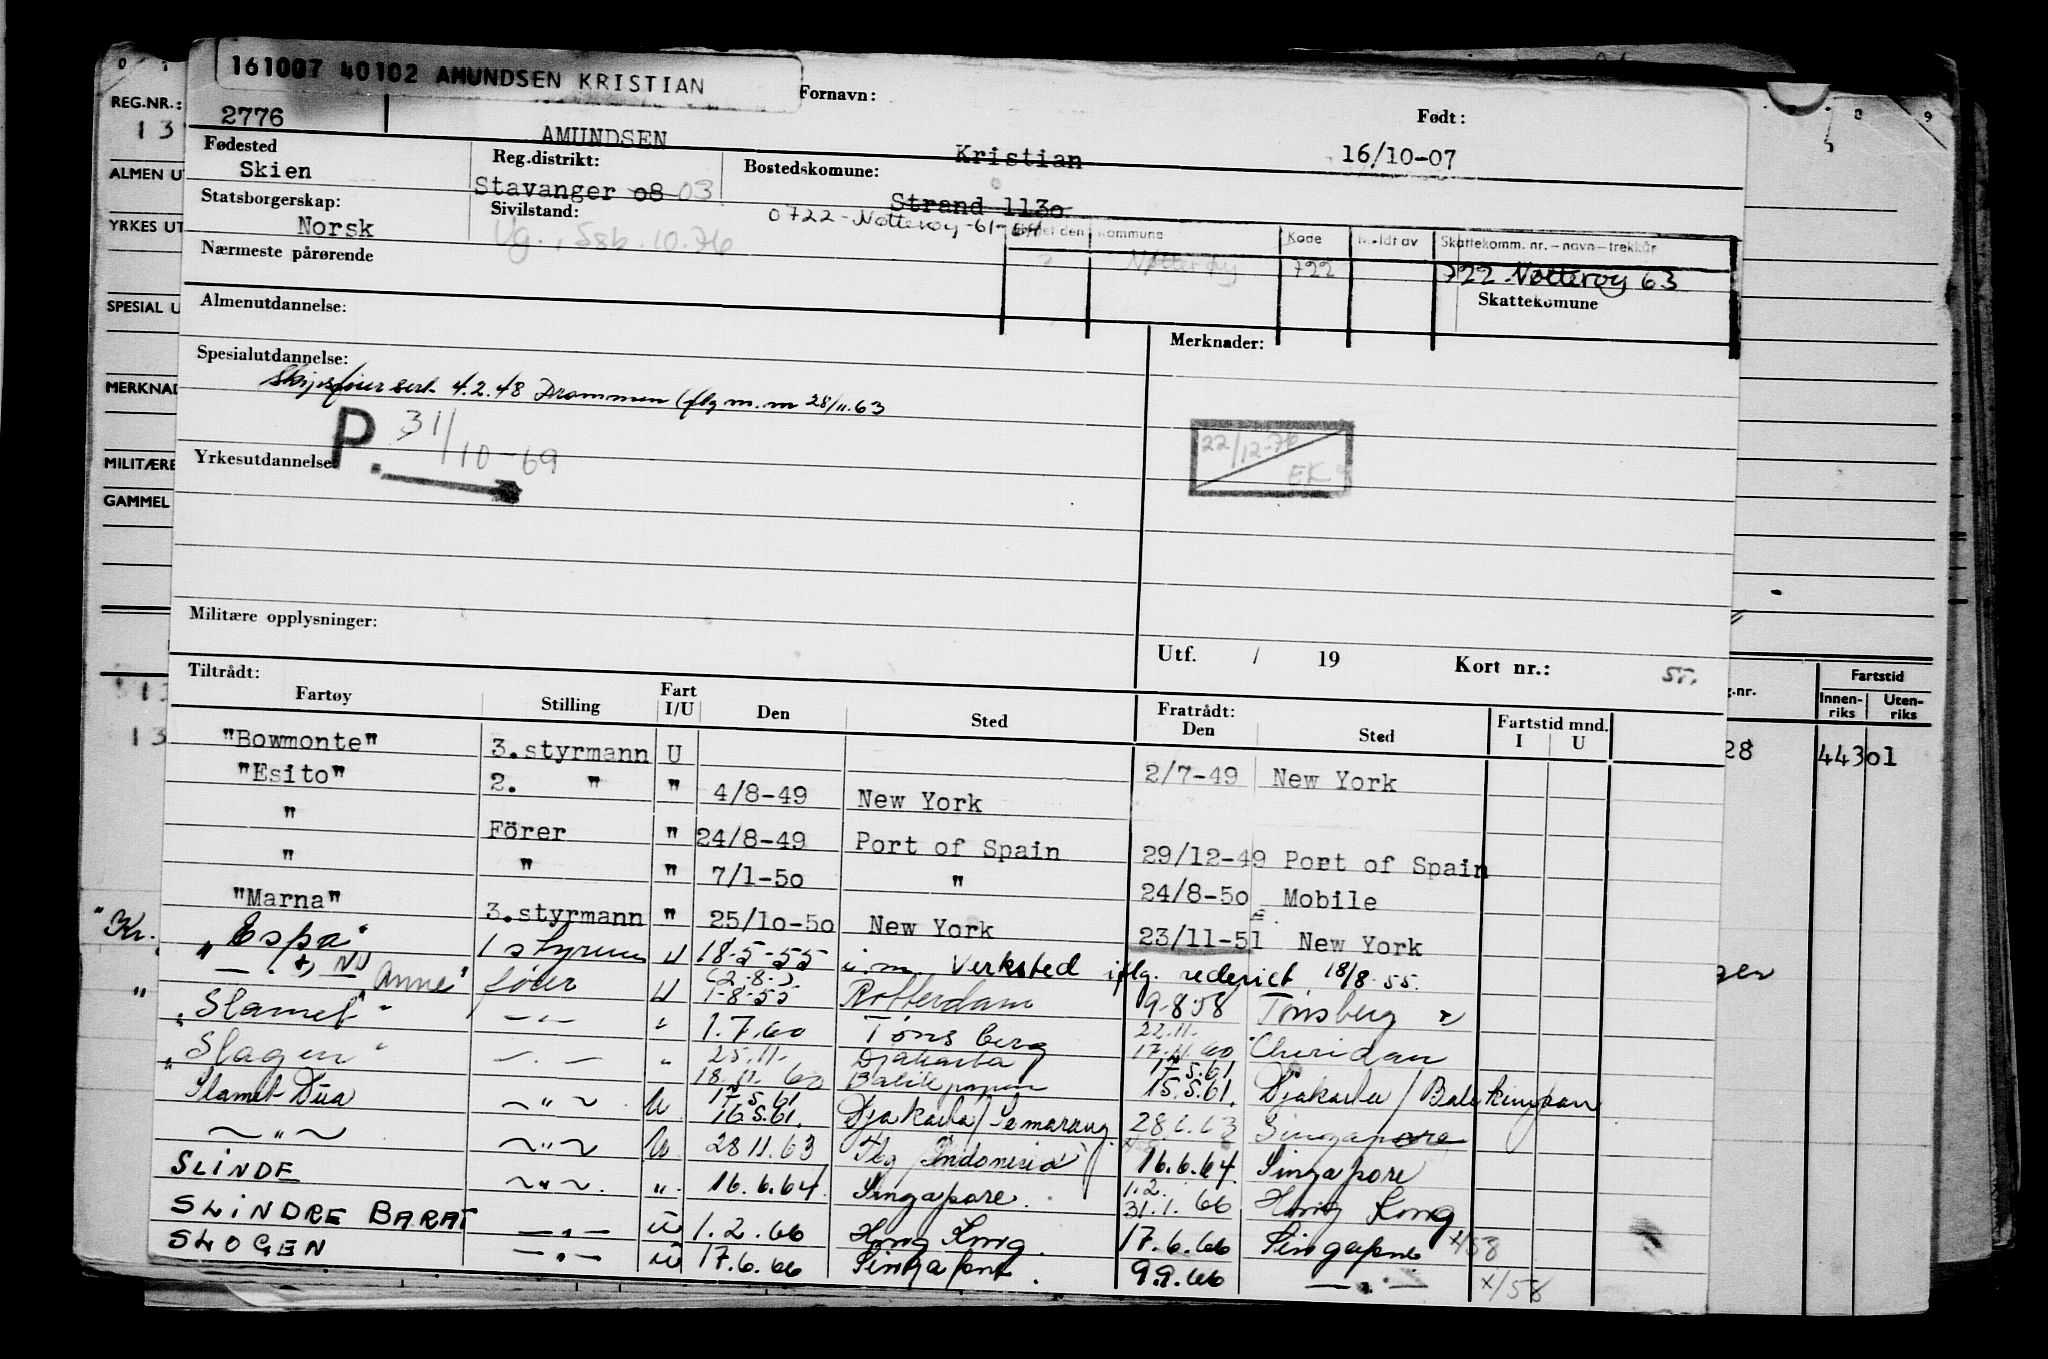 161007 40102 AMUNDSEN KRISTIAN
Fornavn: Født:
2776 AMUNDSEN Kristian 16/10-07
Fødested Reg.distrikt: Bostedskomune:
Skien Stavanger 08 03 Strand 1130
Statsborgerskap: Sivilstand: 0722-Nøtterøy-61-64
Norsk Vg., Ssb. 10.76
den Kommune Kode Meldt av Skattekomm. nr.-navn-trekkår
Nærmeste pårørende
Nøtterøy 722 722 Nøtterøy 63
Skattekomune
Almenutdannelse:
Merknader:
Spesialutdannelse:
Skipsfører sert. 4.2.48 Drammen (flg m.m 28/11.63
P. 31/10-69
22/12-76 EK
Yrkesutdannelse
Militære opplysninger:
Utf. / 19 Kort nr.: 55.
Tiltrådt: Fratrådt:
Fartøy Stilling Fart I/U Den Sted Den Sted Fartstid mnd. I U
"Bowmonte" 3.styrmann U 2/7-49 New York
"Esito" 2. " " 4/8-49 New York
" Förer " 24/8-49 Port of Spain 29/12-49 Port of Spain
" " " 7/1-50 " 24/8-50 Mobile
"Marna" 3.styrmann " 25/10-50 New York 23/11-51 New York
"Espa" 1 styrm U 18-5-55 i.m. Verksted iflg. rederiet 18/8-55.
Anne" fører U (2.8.) 1-8-55 Rotterdam 9-8-58 Tønsberg
"Slamet" — " — " 1.7.60 Tønsberg 22.11. 17.11.60
"Slagen" — " — " 25.11. 18.11.60 Djakarta Balikpapan 17.5.61 15.5.61. Djakarta / Balikpapan
Slamet Dua ~ " ~ U 17.5.61 16.5.61. Djakarta / Semarang 28.6.63 Singapore
~ " ~ ~ " ~ U. 28.11.63 Tbg Indonesia 16.6.64. Singapore
SLINDE ~ " ~. ". 16.6.64. Singapore. 1.2. 31.1.66 Hong Kong
SLINDRE BARAT — " — U 1.2.66 Hong Kong. 17.6.66 Singapore x/58
SLOGEN — " — U 17.6.66 Singapore. 9.9.66 — " — x/58
REG.NR.:
13
ALMEN UT
YRKES UT
SPESIAL U
MERKNAD
MILITÆRE
GAMMEL
13
13
"Kr.
"
8 9
g.nr. Fartstid
Innen-riks Uten-riks
28 443 01
ger